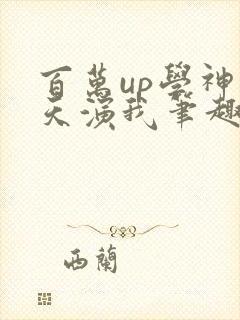 百萬up學神
天演我筆趣
西蘭